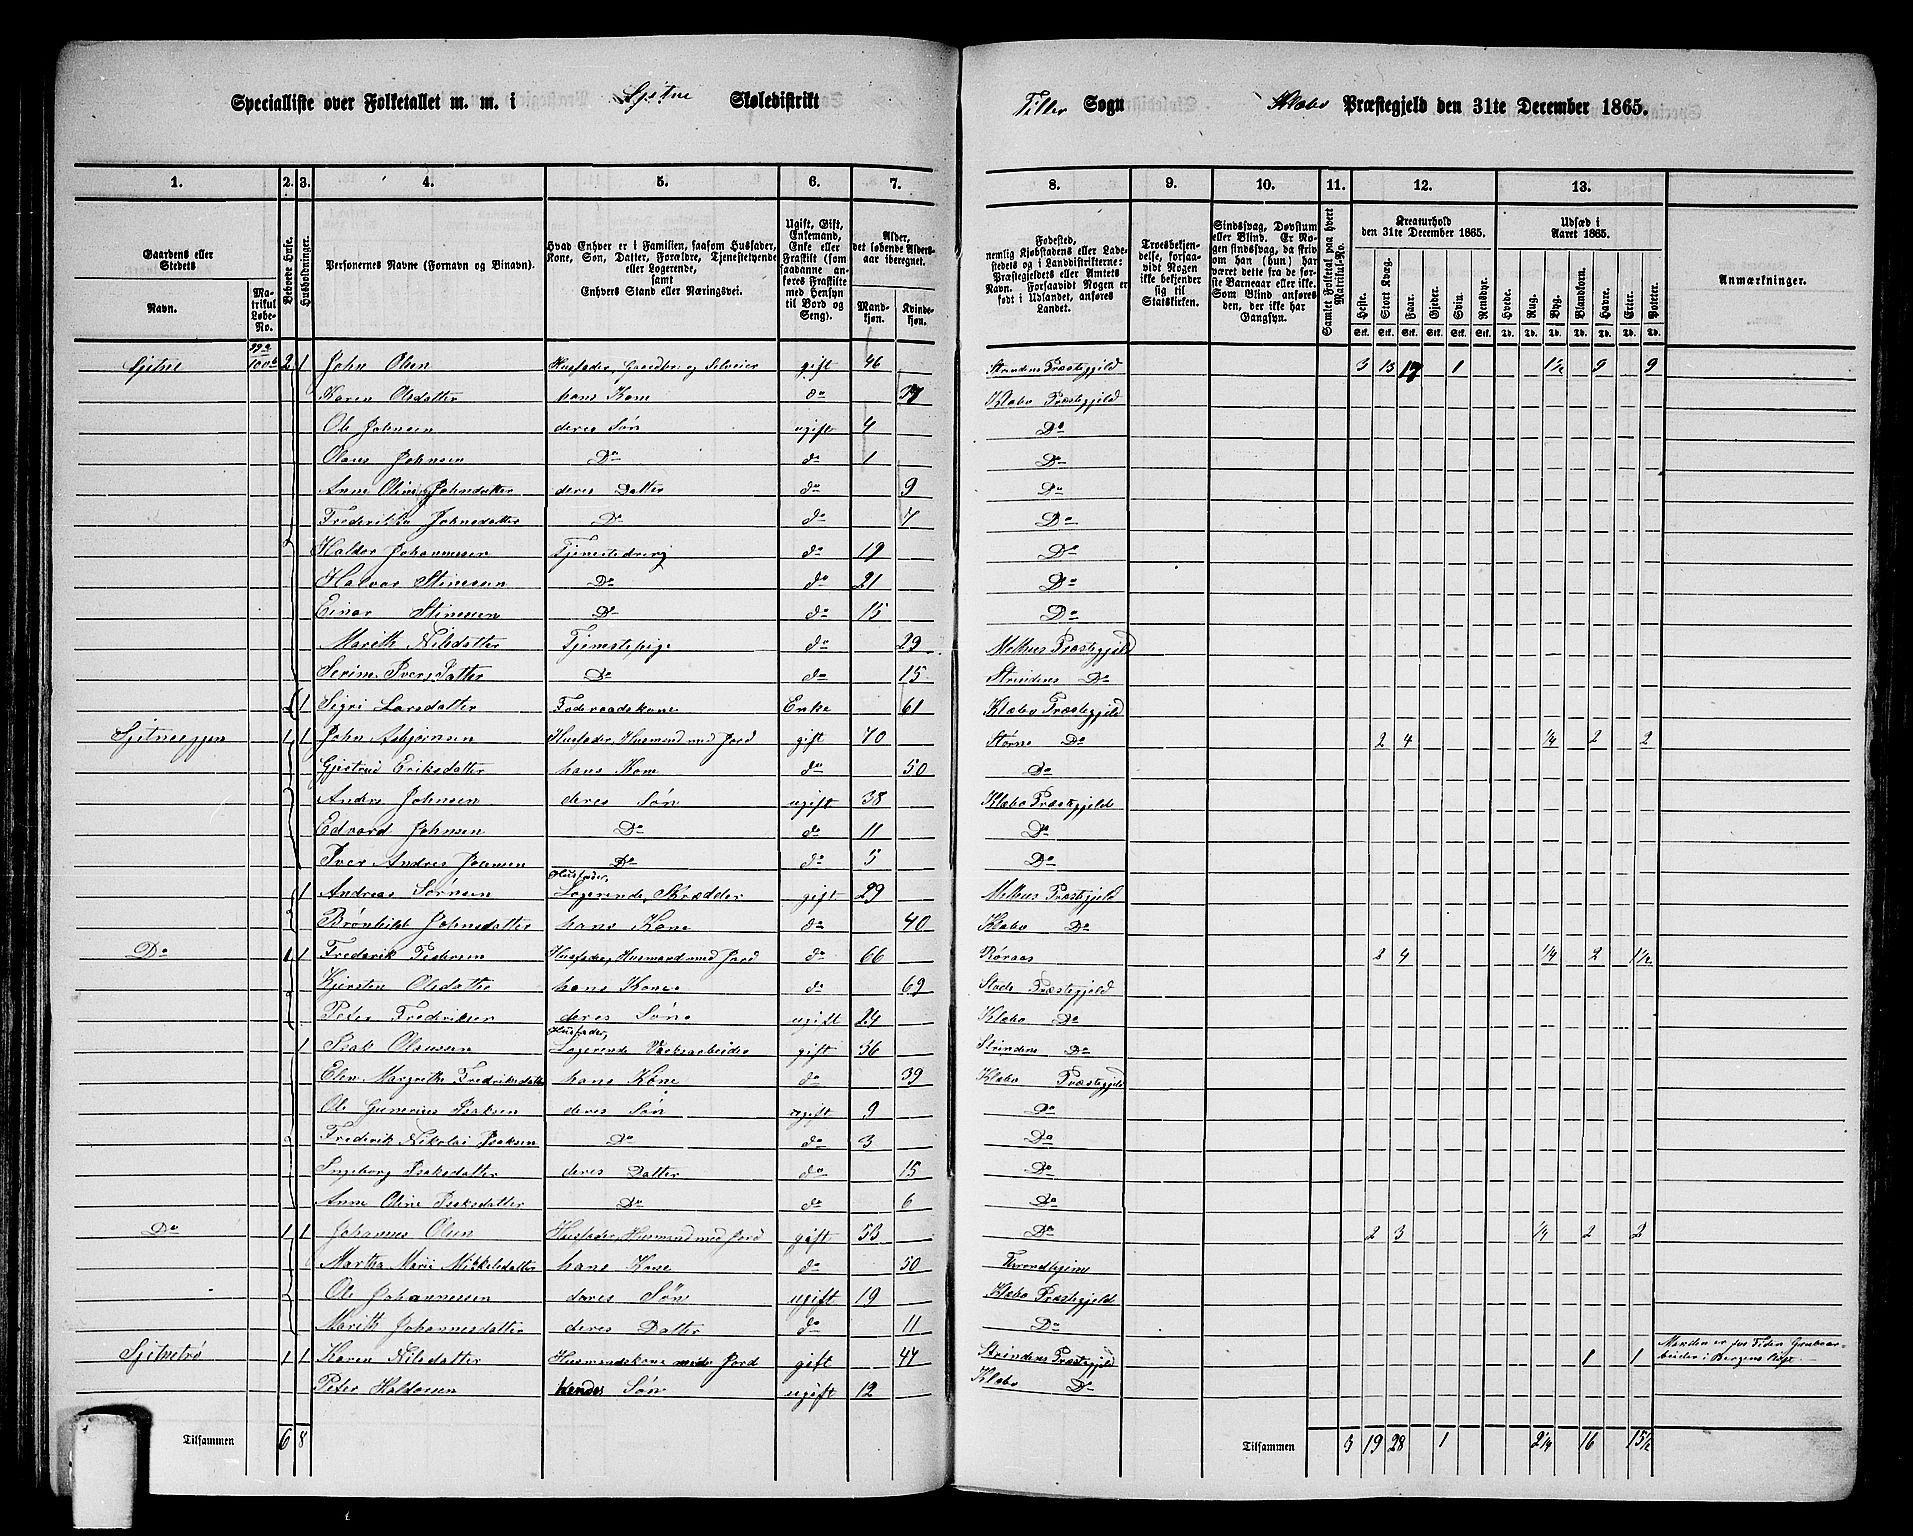 Specialliste over Folketallet m. m. i Sjetne Skoledistrikt Tiller Sogn Klæbo Præstegjeld den 31te December 1865.
1. 2. 3. 4. 5. 6. 7. 8. 9. 10. 11. 12. 13.
Gaardens eller Stedets
Navn.
Matrikul Løbe-No.
Beboede Huse.
Husholdninger.
Personernes Navne (Fornavn og Binavn).
Hvad Enhver er i Familien, saasom Husfader, Kone, Søn, Datter, Forældre, Tjenestetyende eller Logerende, samt Enhvers Stand eller Næringsvei.
Ugift, Gift, Enkemand, Enke eller Fraskilt (som saadanne anføres Fraskilte med Hensyn til Bord og Seng).
Alder, det løbende Alders-aar iberegnet.
Mandkjøn.
Kvindekjøn.
Fødested, nemlig Kjøbstadens eller Ladestedets og i Landdistrikterne: Præstegjeldets eller Amtets Navn. Forsaavidt Nogen er født i Udlandet, anføres Landet.
Troesbekjendelse, forsaavidt Nogen ikke bekjender sig til Statskirken.
Sindssvag, Døvstum eller Blind. Er Nogen sindssvag, da skrives om han (hun) har været dette fra de første Barneaar eller ikke. Som Blind anføres der, der ikke har Gangsyn.
Samlet Folketal paa hvert Matrikul-No.
Kreaturhold den 31te December 1865.
Heste. Stort Kvæg. Faar. Gjeder. Svin. Rensdyr.
Udsæd i Aaret 1865.
Hvede. Rug. Byg. Blandkorn. Havre. Erter. Poteter.
Anmærkninger.
Sjetne 99a 100b 2 1 John Olsen Husfader, Gaardbr. og Selveier gift 46 Strindens Præstegjeld 3 13 17 1 1½ 9 9
Karen Olsdatter hans Kone do 37 Klæbo Præstegjeld
Ole Johnsen deres Søn ugift 4 Do
Olaus Johnsen Do do 1 Do
Anne Oline Johnsdatter deres Datter do 9 Do
Frederikka Johnsdatter Do do 7 Do
Haldor Johannessen Tjenestedreng do 19 Do
Halvor Stinessen Do do 21 Do
Einar Stinessen Do do 15 Do
Marith Nilsdatter Tjenestepige do 29 Melhus Præstegjeld
Serine Iversdatter Do do 15 Strindens Do
1 Sigri Larsdatter Føderaadskone Enke 61 Klæbo Præstegjeld
Sjetneeggen 1 1 John Asbjørnsen Husfader, Husmand med Jord gift 70 Størens Do 2 4 ¼ 2 2
Gjertrud Eriksdatter hans Kone do 50 Do
Anders Johnsen deres Søn ugift 38 Klæbo Præstegjeld
Edvard Johnsen Do do 11 Do
Iver Andreas Johnsen Do do 5 Do
1 Andreas Sørnsen Husfader, Logerende, Skrædder gift 29 Melhus Præstegjeld
Brønhild Johnsdatter hans Kone do 40 Klæbo Do
Do 1 1 Frederik Pedersen Husfader, Husmand med Jord do 66 Røraas 2 4 ¼ 2 1½
Kjersten Olsdatter hans Kone do 69 Stods Præstegjeld
Peter Frederiksen deres Søn ugift 24 Klæbo Do
1 Isak Olaussen Husfader, Logerende Værksarbeider gift 36 Strindens Do
Elen Margrethe Fredriksdatter hans Kone do 39 Klæbo Præstegjeld
Ole Gunerius Isaksen deres Søn ugift 9 Do
Frederik Nikolai Isaksen Do do 3 Do
Ingeborg Isaksdatter deres Datter do 15 Do
Anne Oline Isaksdatter Do do 6 Do
Do 1 1 Johannes Olsen Husfader, Husmand med Jord gift 53 Do 2 3 ¼ 2 2
Martha Marie Mikkelsdatter hans Kone do 50 Throndhjem
Ole Johannessen deres Søn ugift 19 Klæbo Præstegjeld
Marith Johannesdatter deres Datter do 11 Do
Sjetnetrø 1 1 Karen Nilsdatter Husmandskone med Jord gift 44 Strindens Præstegjeld 1 1 Manden er for Tiden Grubearbeider i Bergens Stift
Peter Haldorsen hendes Søn ugift 12 Klæbo Do
Tilsammen 6 8 Tilsammen 3 19 28 1 2¼ 16 15½